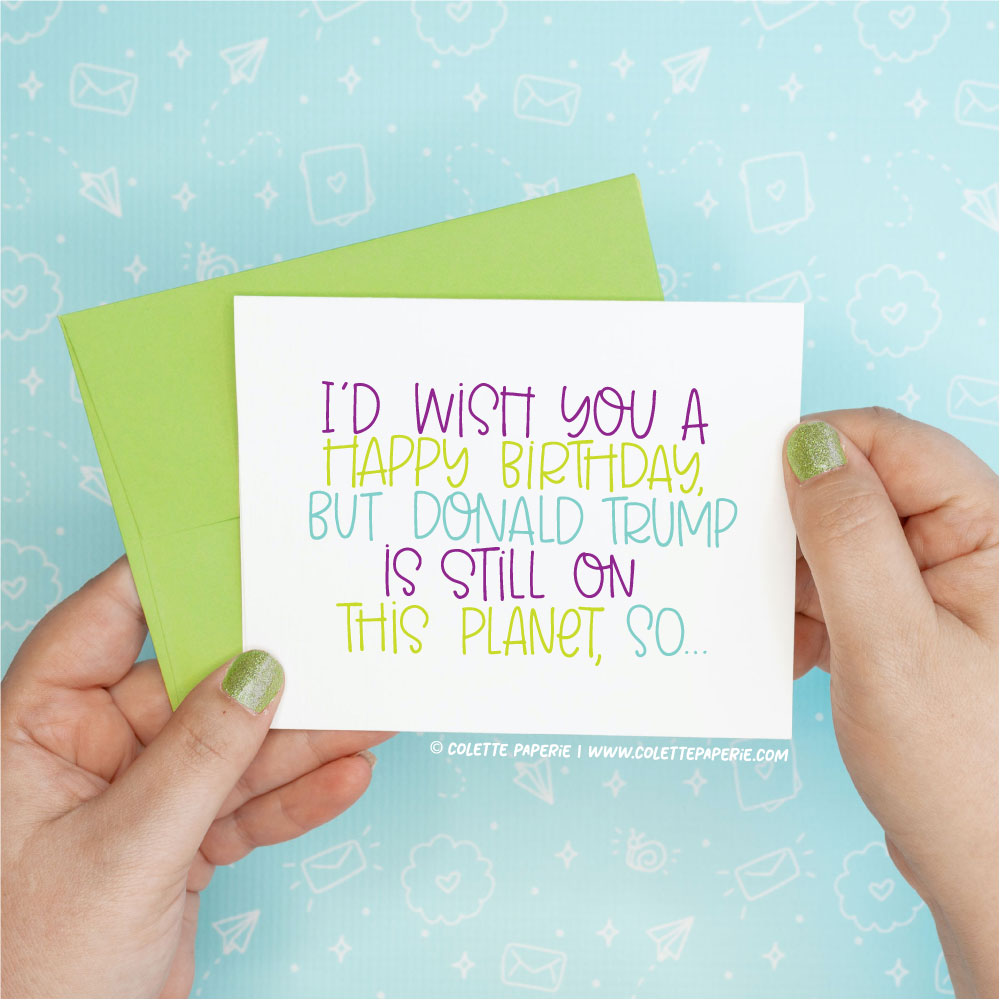 I'D WISH YOU A
HAPPY BIRTHDAY,
BUT DONALD TRUMP
IS STILL ON
THIS PLANET, SO...
© COLETTE PAPERIE | WWW.COLETTEPAPERIE.COM